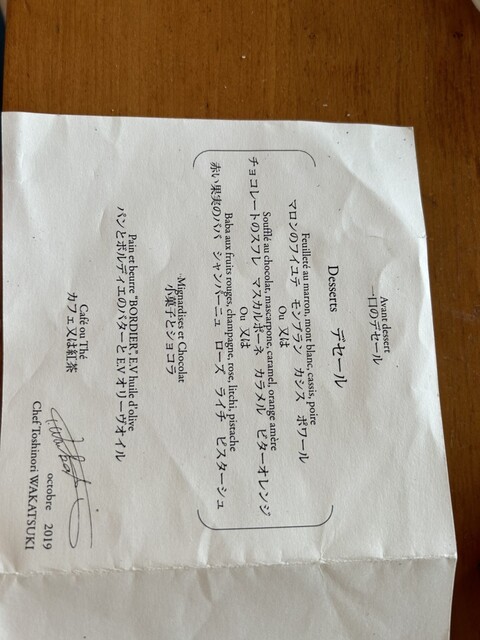 Avant dessert
一口のデセール
Desserts デセール
Feuilleté au marron, mont blanc, cassis, poire
マロンのフイユテ モンブラン カシス ポワール
Ou 又は
Soufflé au chocolat, mascarpone, caramel, orange amère
チョコレートのスフレ マスカルポーネ カラメル ビターオレンジ
Ou 又は
Baba aux fruits rouges, champagne, rose, litchi, pistache
赤い果実のババ シャンパーニュ ローズ ライチ ピスターシュ
Mignardises et Chocolat
小菓子とショコラ
Pain et beurre "BORDIER", E.V huile d'olive
パンとボルディエのバターと E.V オリーヴオイル
Café ou Thé
カフェ又は紅茶
octobre 2019
Chef Toshinori WAKATSUKI